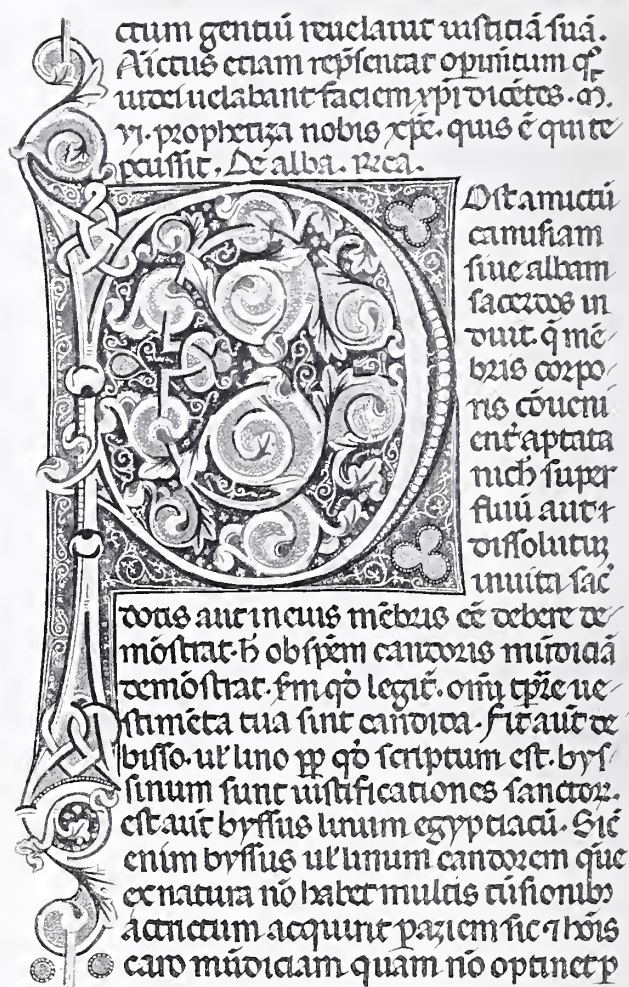 ctum gentiū reuelauit iusticiā suā.
Amictus etiam rep̄sentat opim̄tum qͦ
iudei uelabant faciem xp̄i dicētes. M.
vi. prophetiza nobis xp̄e. quis ē qui te
ꝑcussit. De alba. Rica.
POst amictū
camisiam
siue albam
sacerdos in
duit. q̄ mē
bris corpo
ris cōueni
ent̄ aptata
nich̄ super
fluū aut
dissolutum
in uita sac̄
dotis aut in eius mēbris eē debere de
mōstrat. h̄ ob spēm candoris mūdiciā
demōstrat. sm̄ qd̄ legit̄. omī tp̄re ue
stimēta tua sint candida. fit aūt de
bisso. ul̄ lino ꝓp̄ qd̄ scriptum est. bys
sinum sunt iustificationes sanctoꝝ.
est aūt byssus linum egyptiacū. Sic̄
enim byssus ul̄ linum candorem quē
ex natura nō habet multis tūsionibꝫ
actrictum acquirit ꝑ aziem sic ⁊ hōīs
caro mūdiciam quam nō optinet ꝑ